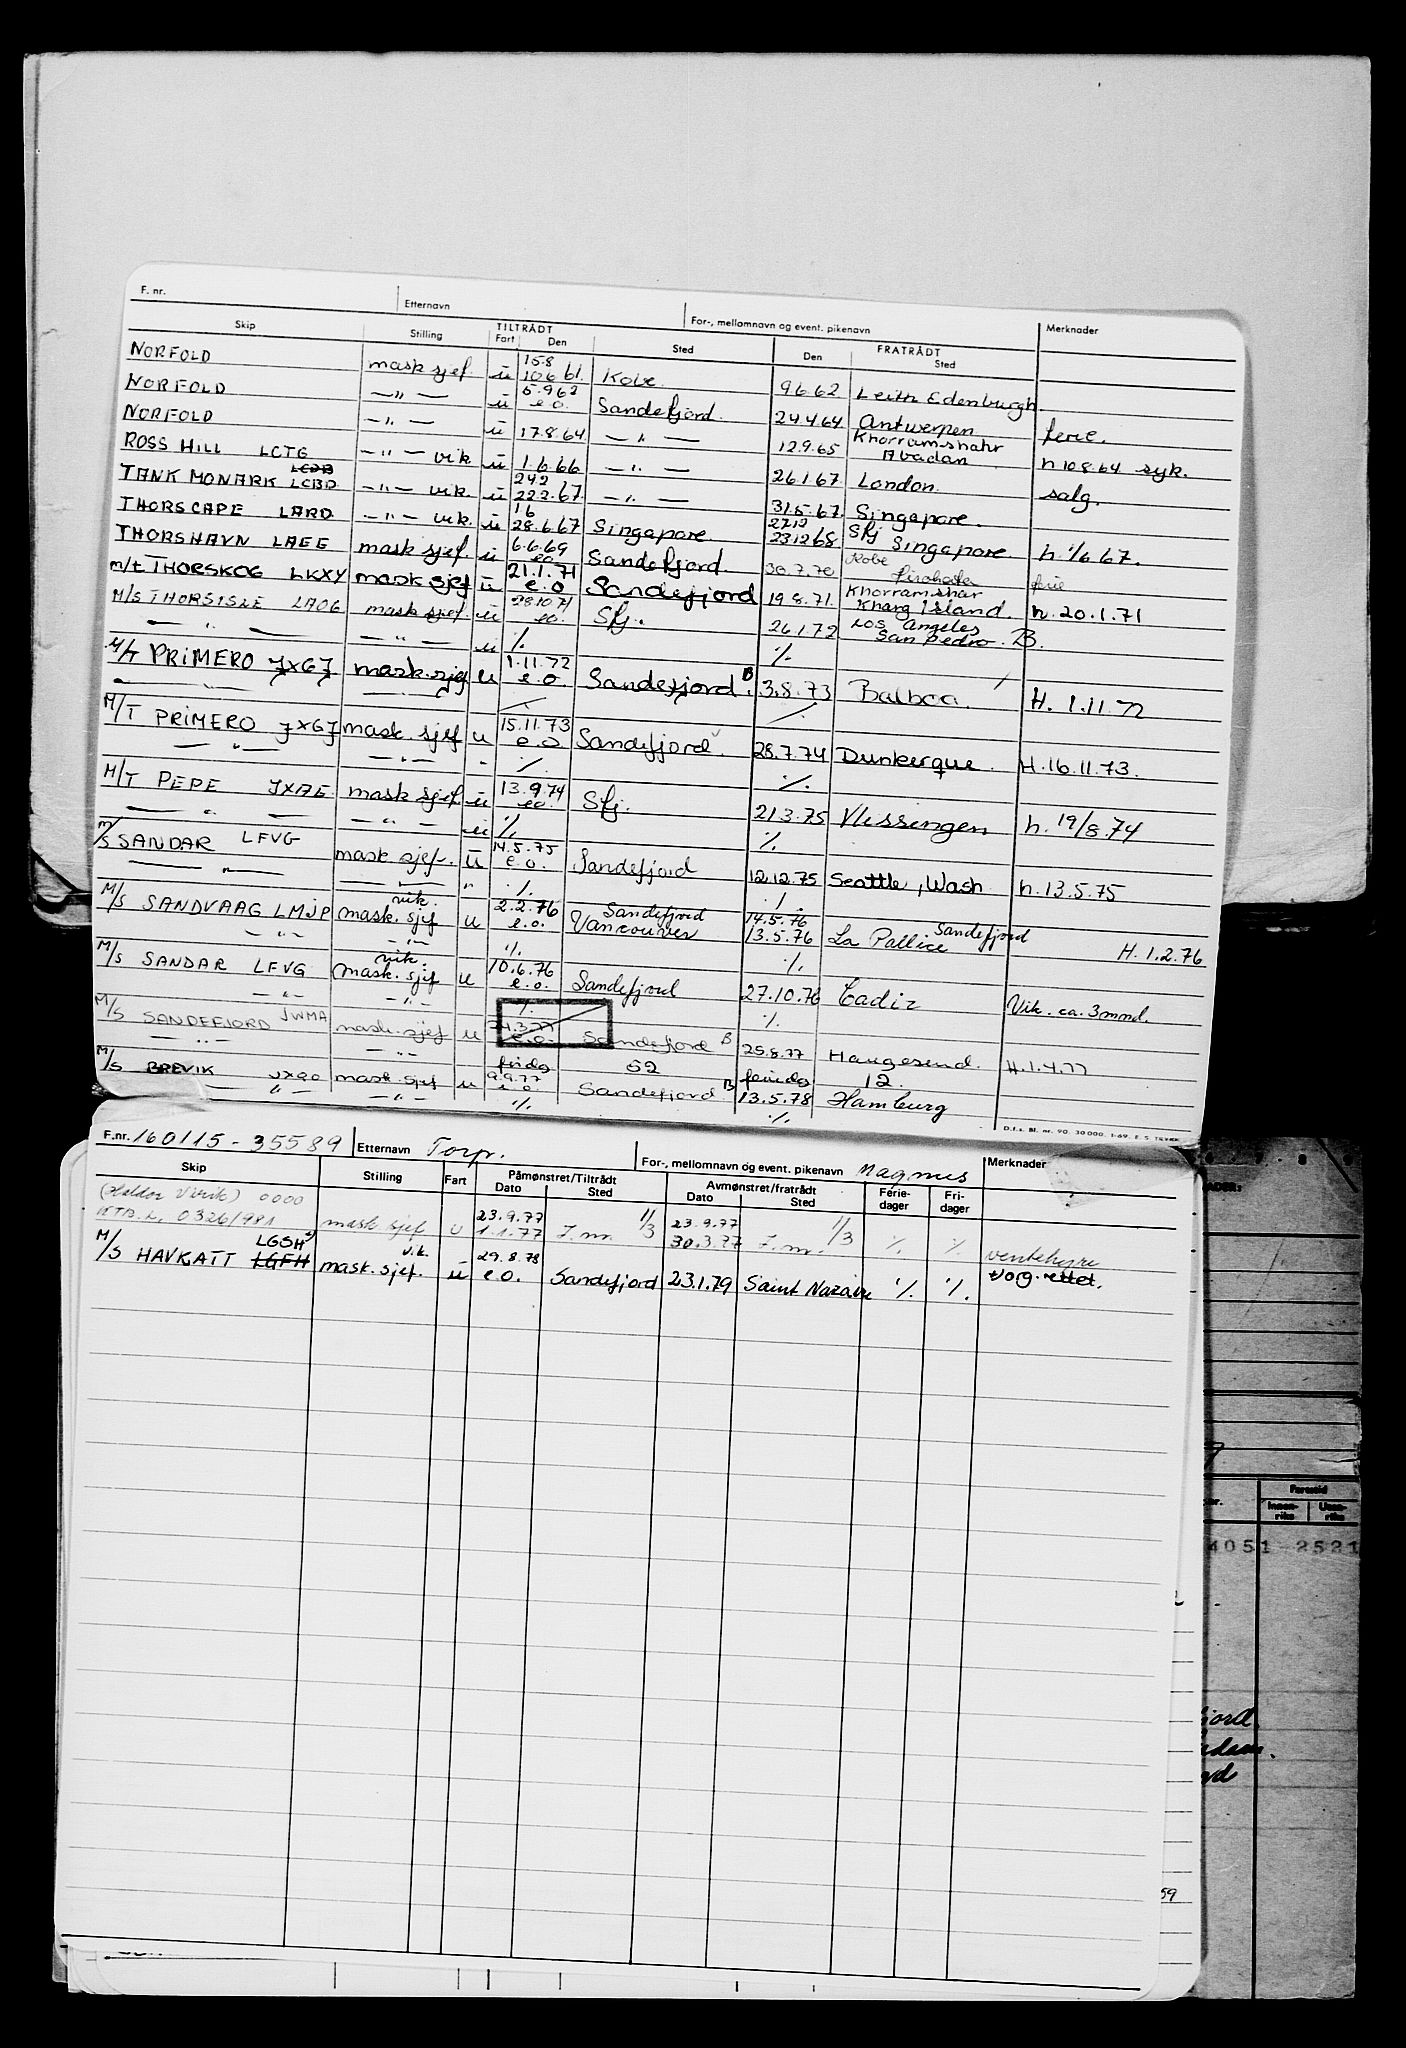 F. nr. Etternavn For-, mellomnavn og event. pikenavn Merknader
Skip Stilling TILTRÅDT Fart Den Sted FRATRÅDT Den Sted
NORFOLD mask sjef. ü 15.8 10.6 61. Kobe. 9.6 62 Leith Edenburgh
NORFOLD —"— ü 5.9 62 e.o. Sandefjord. 24.4 64 Antwerpen ferie.
NORFOLD —"— ü 17.8.64 —"— 12.9.65 Khorramshahr Abadan h 10.8.64 syk.
ROSS HILL LCTG —"— vik ü 1.6.66 —"— 26.1 67 London salg.
TANK MONARK LCBD —"— vik. ü 24.2 22.2.67. —"— 31.5.67. Singapore.
THORSCAPE LARD —"— vik. ü 1.6 28.6.67 Singapore 27.12 23.12 68 Sfj Singapore h 1/6 67.
THORSHAVN LAEE mask sjef. ü 6.6.69 e.o. Sandefjord. 30.7.70 Kobe ferie
m/t THORSKOG LKXY mask sjef ü 21.1.71 e.o Sandefjord 19.8.71. Khorramshar Kharg Island. h. 20.1.71
M/S THORSISLE LAOG mask sjef. ü 28.10.71 e.o. Sfj. 26.1 72 Los Angeles San Pedro. B.
—"— —"— ü %. %.
M/T PRIMERO JXGJ mask. sjef u 1.11.72 e.o. Sandefjord B. 3.8.73 Balboa. H. 1.11.72
—"— —"— %. %.
M/T PRIMERO JXGJ mask. sjef u 15.11.73 e.o Sandefjord 28.7.74 Dunkerque. H.16.11.73.
—"— —"— " %. %.
M/T PEPE JXAE mask sjef ü 13.9.74 e.o. Sfj. 21.3.75 Vlissingen h. 19/8.74
—"— —"— ü %. %.
M/S SANDAR LFVG mask sjef. ü 14.5.75 e.o. Sandefjord 12.12.75 Seattle, Wash. h. 13.5.75
—"— —"— " %. %.
M/S SANDVAAG LMJP vik. mask. sjef u 2.2.76 e.o. Sandefjord Vancouver 14.5.76 13.5.76 Sandefjord La Pallice H. 1.2.76
—"— —"— %. %.
M/S SANDAR LFVG vik. mask. sjef u 10.6.76 e.o. Sandefjord 27.10.76 Cadiz Vik. ca. 3 mnd.
—"— —"— %. %.
M/S SANDEFJORD JWMA mask. sjef u e.o. Sandefjord B 25.8.77 Haugesund H.1.4.77
—"— —"— feridg 52 feridg 12.
M/S BREVIK JXQO mask. sjef u 9.9.77 e.o Sandefjord B 13.5.78 Hamburg
—"— —"— %. %.
D.f.s. Bl. nr. 90. 30 000. 1-69. E. S. TRYKK
F.nr. 160115-35589 Etternavn Torp. For-, mellomnavn og event. pikenavn Magnus Merknader
Skip Stilling Fart Påmønstret/Tiltrådt Dato Sted Avmønstret/fratrådt Dato Sted Ferie-dager Fri-dager
(Haldor Virik) 0000
KTB. L. 0326/981 mask sjef u 23.9.77 1.1.77 J.m. 1/3 23.9.77 30.3.77 J.m. 1/3 %. %. ventehyre
M/S HAVKATT LGSH LGFH vik. mask. sjef. ü 29.8.78 e.o. Sandefjord 23.1.79 Saint Nazaire %. %. vog. rettet.
Fartstid
Innen-riks Uten-riks
4051-2521
59